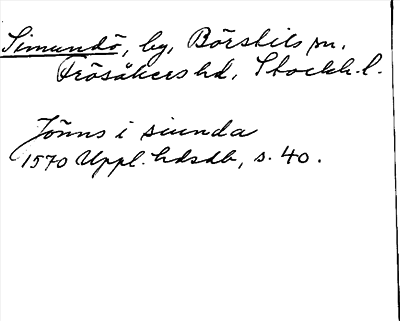 Simundö, by, Börstils sn.
Frösåkers hd, Stockh. l.
Jönns i siunda
1570 Uppl. hdsdb, s. 40.